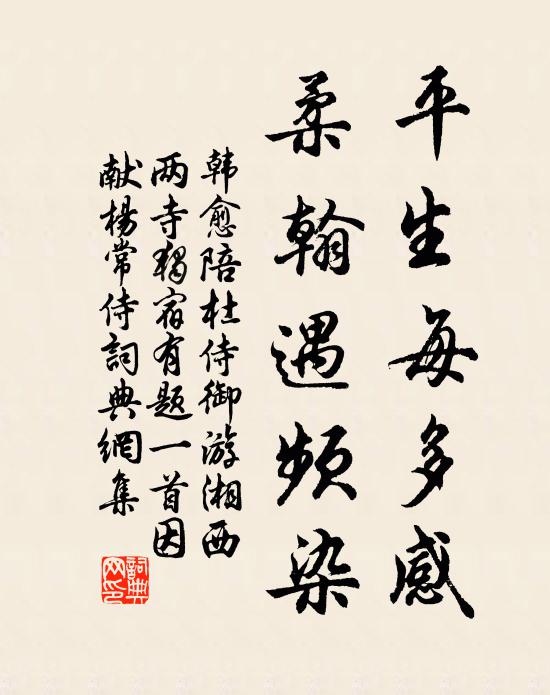 平生每多感
柔翰遇频染
韩愈陪杜侍御游湘西
两寺独宿有题一首因
献杨常侍詞典網集
詞典
网印